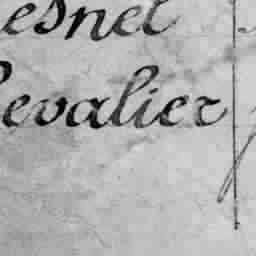 esnel
hevalier